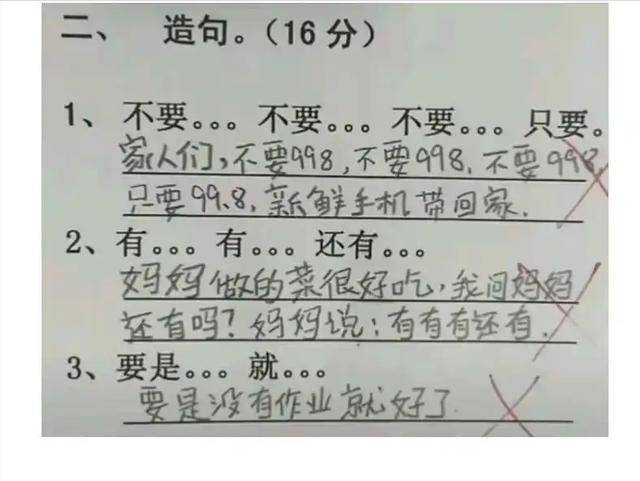 二、 造句。（16 分）
1、 不要。。。不要。。。不要。。。只要。
家人们，不要998，不要998，不要998
只要99.8，新鲜手机带回家．
2、有。。。有。。。还有。。。
妈妈做的菜很好吃，我问妈妈
还有吗？妈妈说：有有有还有．
3、要是。。。就。。。
要是没有作业就好了